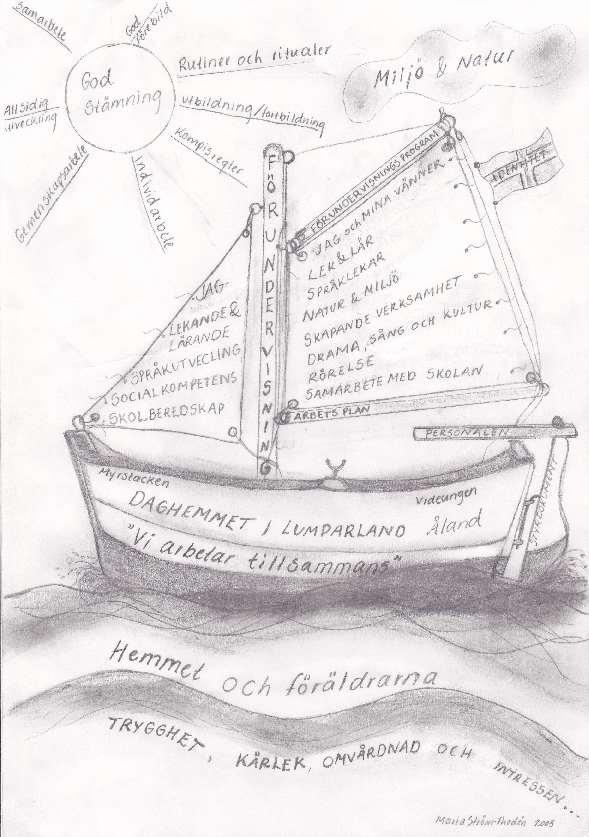 Samarbete
God
förebild
Rutiner och ritualer
utbildning/fortbildning
Kompisregler
Individ arbete
Gemenskapsarbete
Allsidig
utveckling
God
Stämning
Miljö & Natur
IDENTITET
FÖRUNDERVISNING
FÖRUNDERVISNINGSPROGRAM
JAG och MINA VÄNNER
LEK & LÄR
SPRÅKLEKAR
NATUR & MILJÖ
SKAPANDE VERKSAMHET
DRAMA, SÅNG OCH KULTUR
RÖRELSE
SAMARBETE MED SKOLAN
ARBETSPLAN
JAG
LEKANDE &
LÄRANDE
SPRÅKUTVECLING
SOCIALKOMPETENS
SKOLBEREDSKAP
PERSONALEN
Myrstacken
Videungen
DAGHEMMET I LUMPARLAND Åland
"Vi arbetar tillsammans"
Hemmet och föräldrarna
TRYGGHET, KÄRLEK, OMVÅRDNAD OCH INTRESSEN...
2005